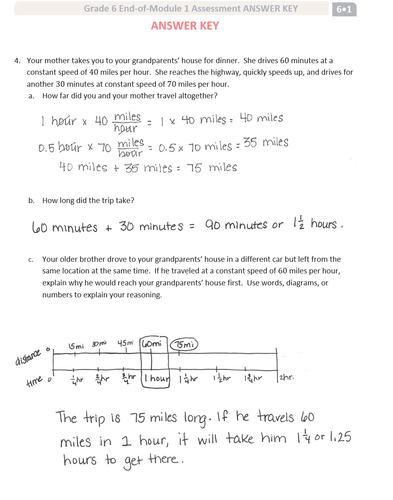 Grade 6 End-of-Module 1 Assessment ANSWER KEY 6•1
ANSWER KEY
4. Your mother takes you to your grandparents’ house for dinner. She drives 60 minutes at a
constant speed of 40 miles per hour. She reaches the highway, quickly speeds up, and drives for
another 30 minutes at constant speed of 70 miles per hour.
a. How far did you and your mother travel altogether?
1 hour × 40 miles/hour = 1 × 40 miles = 40 miles
0.5 hour × 70 miles/hour = 0.5 × 70 miles = 35 miles
40 miles + 35 miles = 75 miles
b. How long did the trip take?
60 minutes + 30 minutes = 90 minutes or 1 1/2 hours.
c. Your older brother drove to your grandparents’ house in a different car but left from the
same location at the same time. If he traveled at a constant speed of 60 miles per hour,
explain why he would reach your grandparents’ house first. Use words, diagrams, or
numbers to explain your reasoning.
distance 0 15mi 30mi 45mi 60mi 75mi
time 0 1/4hr 2/4hr 3/4hr 1 hour 1 1/4hr 1 1/2hr 1 3/4hr 2hr.
The trip is 75 miles long. If he travels 60
miles in 1 hour, it will take him 1 1/4 or 1.25
hours to get there.